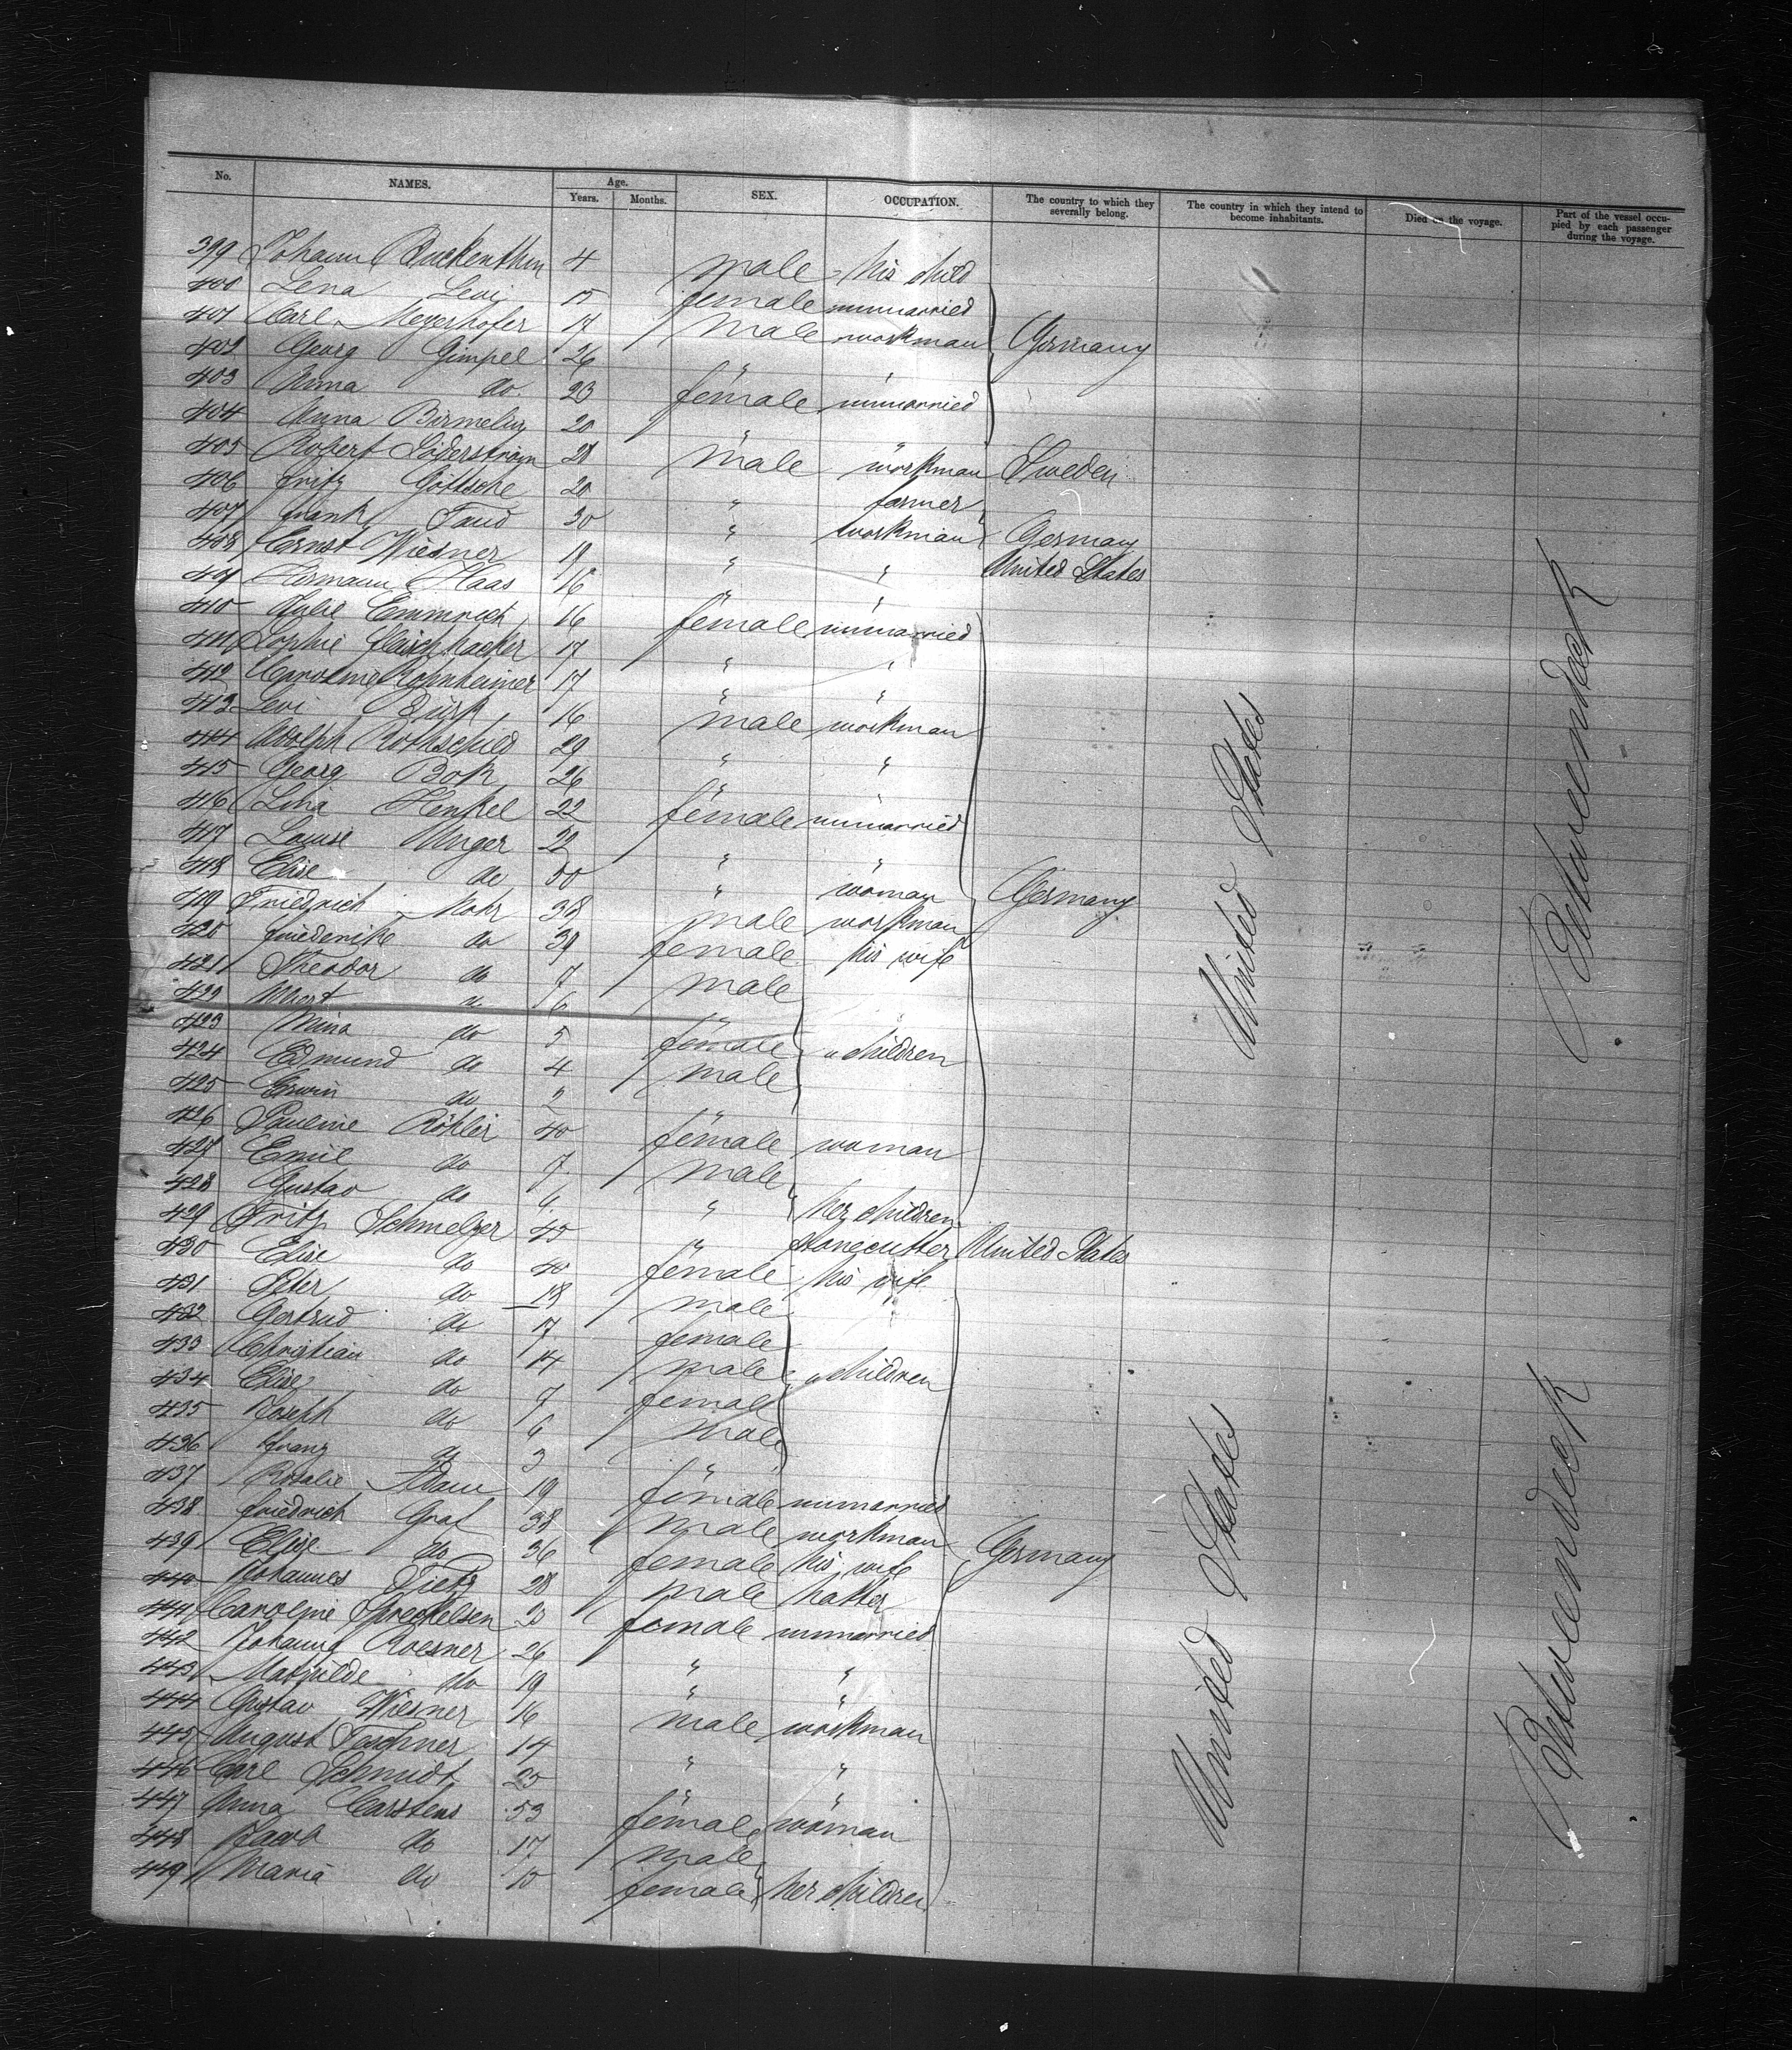 No. NAMES. Age. Years. Months. SEX. OCCUPATION. The country to which they severally belong. The country in which they intend to become inhabitants. Died on the voyage. Part of the vessel occupied by each passenger during the voyage.
399 Johann 4 male his child
400 Lena Levi 15 female unmarried
401 Carl Meyerhofer 17 male workman Germany
402 Georg Gimpel 26 " "
403 Anna do. 23 female unmarried
404 Anna 20 " "
405 Robert Söderström 21 male workman Sweden
406 Fritz Göttsche 20 " farmer
407 Frank 30 " workman Germany
408 Ernst Wiesner 19 " " United States
409 Hermann Haas 16 " "
410 Julie Emmrich 16 female unmarried
411 Sophie Fleischhacker 17 " "
412 Caroline 17 " "
413 Levi 16 male workman
414 Adolph Rothschild 29 " "
415 Georg Bok 26 " "
416 Lina Henkel 22 female unmarried
417 Louise Unger 22 " "
418 Elise do 50 " woman Germany
419 Friedrich Mohr 38 male workman
420 Friederike do 39 female his wife
421 Theodor do 7 male
422 do 6 "
423 Mina do 5 female " children
424 Edmund do 4 male
425 Erwin do 2 "
426 Pauline Röhler 40 female woman
427 Emil do 7 male
428 Gustav do 6 " her children
429 Fritz Schmelzer 45 " stonecutter United States
430 Elise do 40 female his wife
431 Peter do 18 male
432 Gertrud do 17 female
433 Christian do 14 male " children
434 Elise do 7 female
435 Joseph do 6 male
436 Franz do 3 "
437 Rosalie Adam 19 female unmarried
438 Friedrich Graf 38 male workman
439 Elise do 36 female his wife Germany
440 Johannes Tietz 28 male hatter
441 Caroline Spreckelsen 20 female unmarried
442 Johanna Roesner 26 " "
443 Mathilde do 19 " "
444 Gustav Wiesner 16 male workman
445 August Taschner 14 " "
446 Carl Schmidt 25 " "
447 Anna Carstens 53 female woman
448 Jacob do 17 male
449 Maria do 10 female her children
United States
United States
Betweendeck
Betweendeck